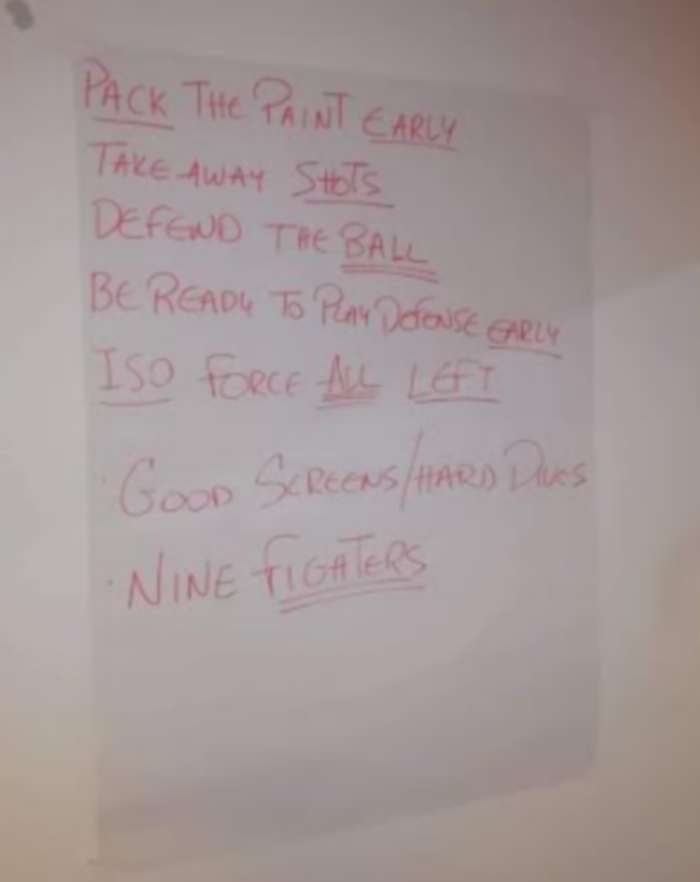 PACK THE PAINT EARLY
TAKE AWAY SHOTS
DEFEND THE BALL
BE READY TO PLAY DEFENSE EARLY
ISO FORCE ALL LEFT
· GOOD SCREENS/HARD DIVES
· NINE FIGHTERS